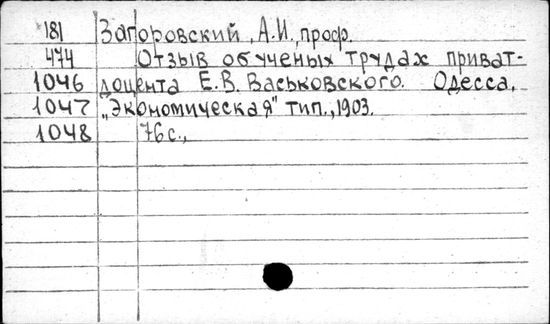 181 Загоровский, А.И., проф.
474 Отзыв об ученых трудах приват-
1046 доцента Е.В. Васьковского. Одесса,
1047 „Экономическая" тип., 1903.
1048 76 с.,